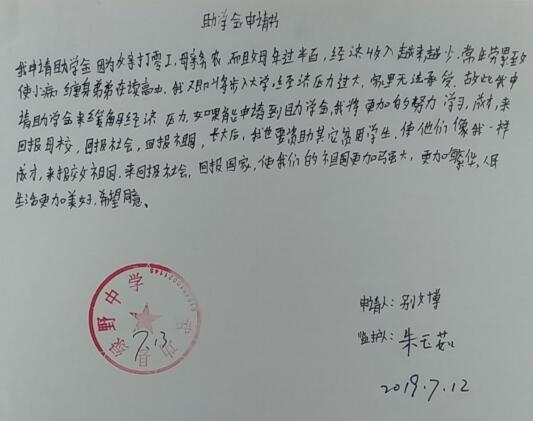 助学金申请书
我申请助学金因为父亲打零工，母亲务农，而且父母年过半百，经济收入越来越少，常年劳累致
使小病缠身弟弟在读高中，我又即将步入大学，经济压力过大，家里无法承受，故此我申
请助学金来缓解经济压力，如果能申请到助学金，我将更加的努力学习，成才，来
回报母校，回报社会，回报祖国，长大后，我也要资助其它贫困学生，使他们像我一样
成才，来报效祖国，来回报社会，回报国家，使我们的祖国更加强大，更加繁华，人民
生活更加美好，希望同意。
绿野中学
7.13
申请人：别文博
监护人：朱玉茹
2019.7.12